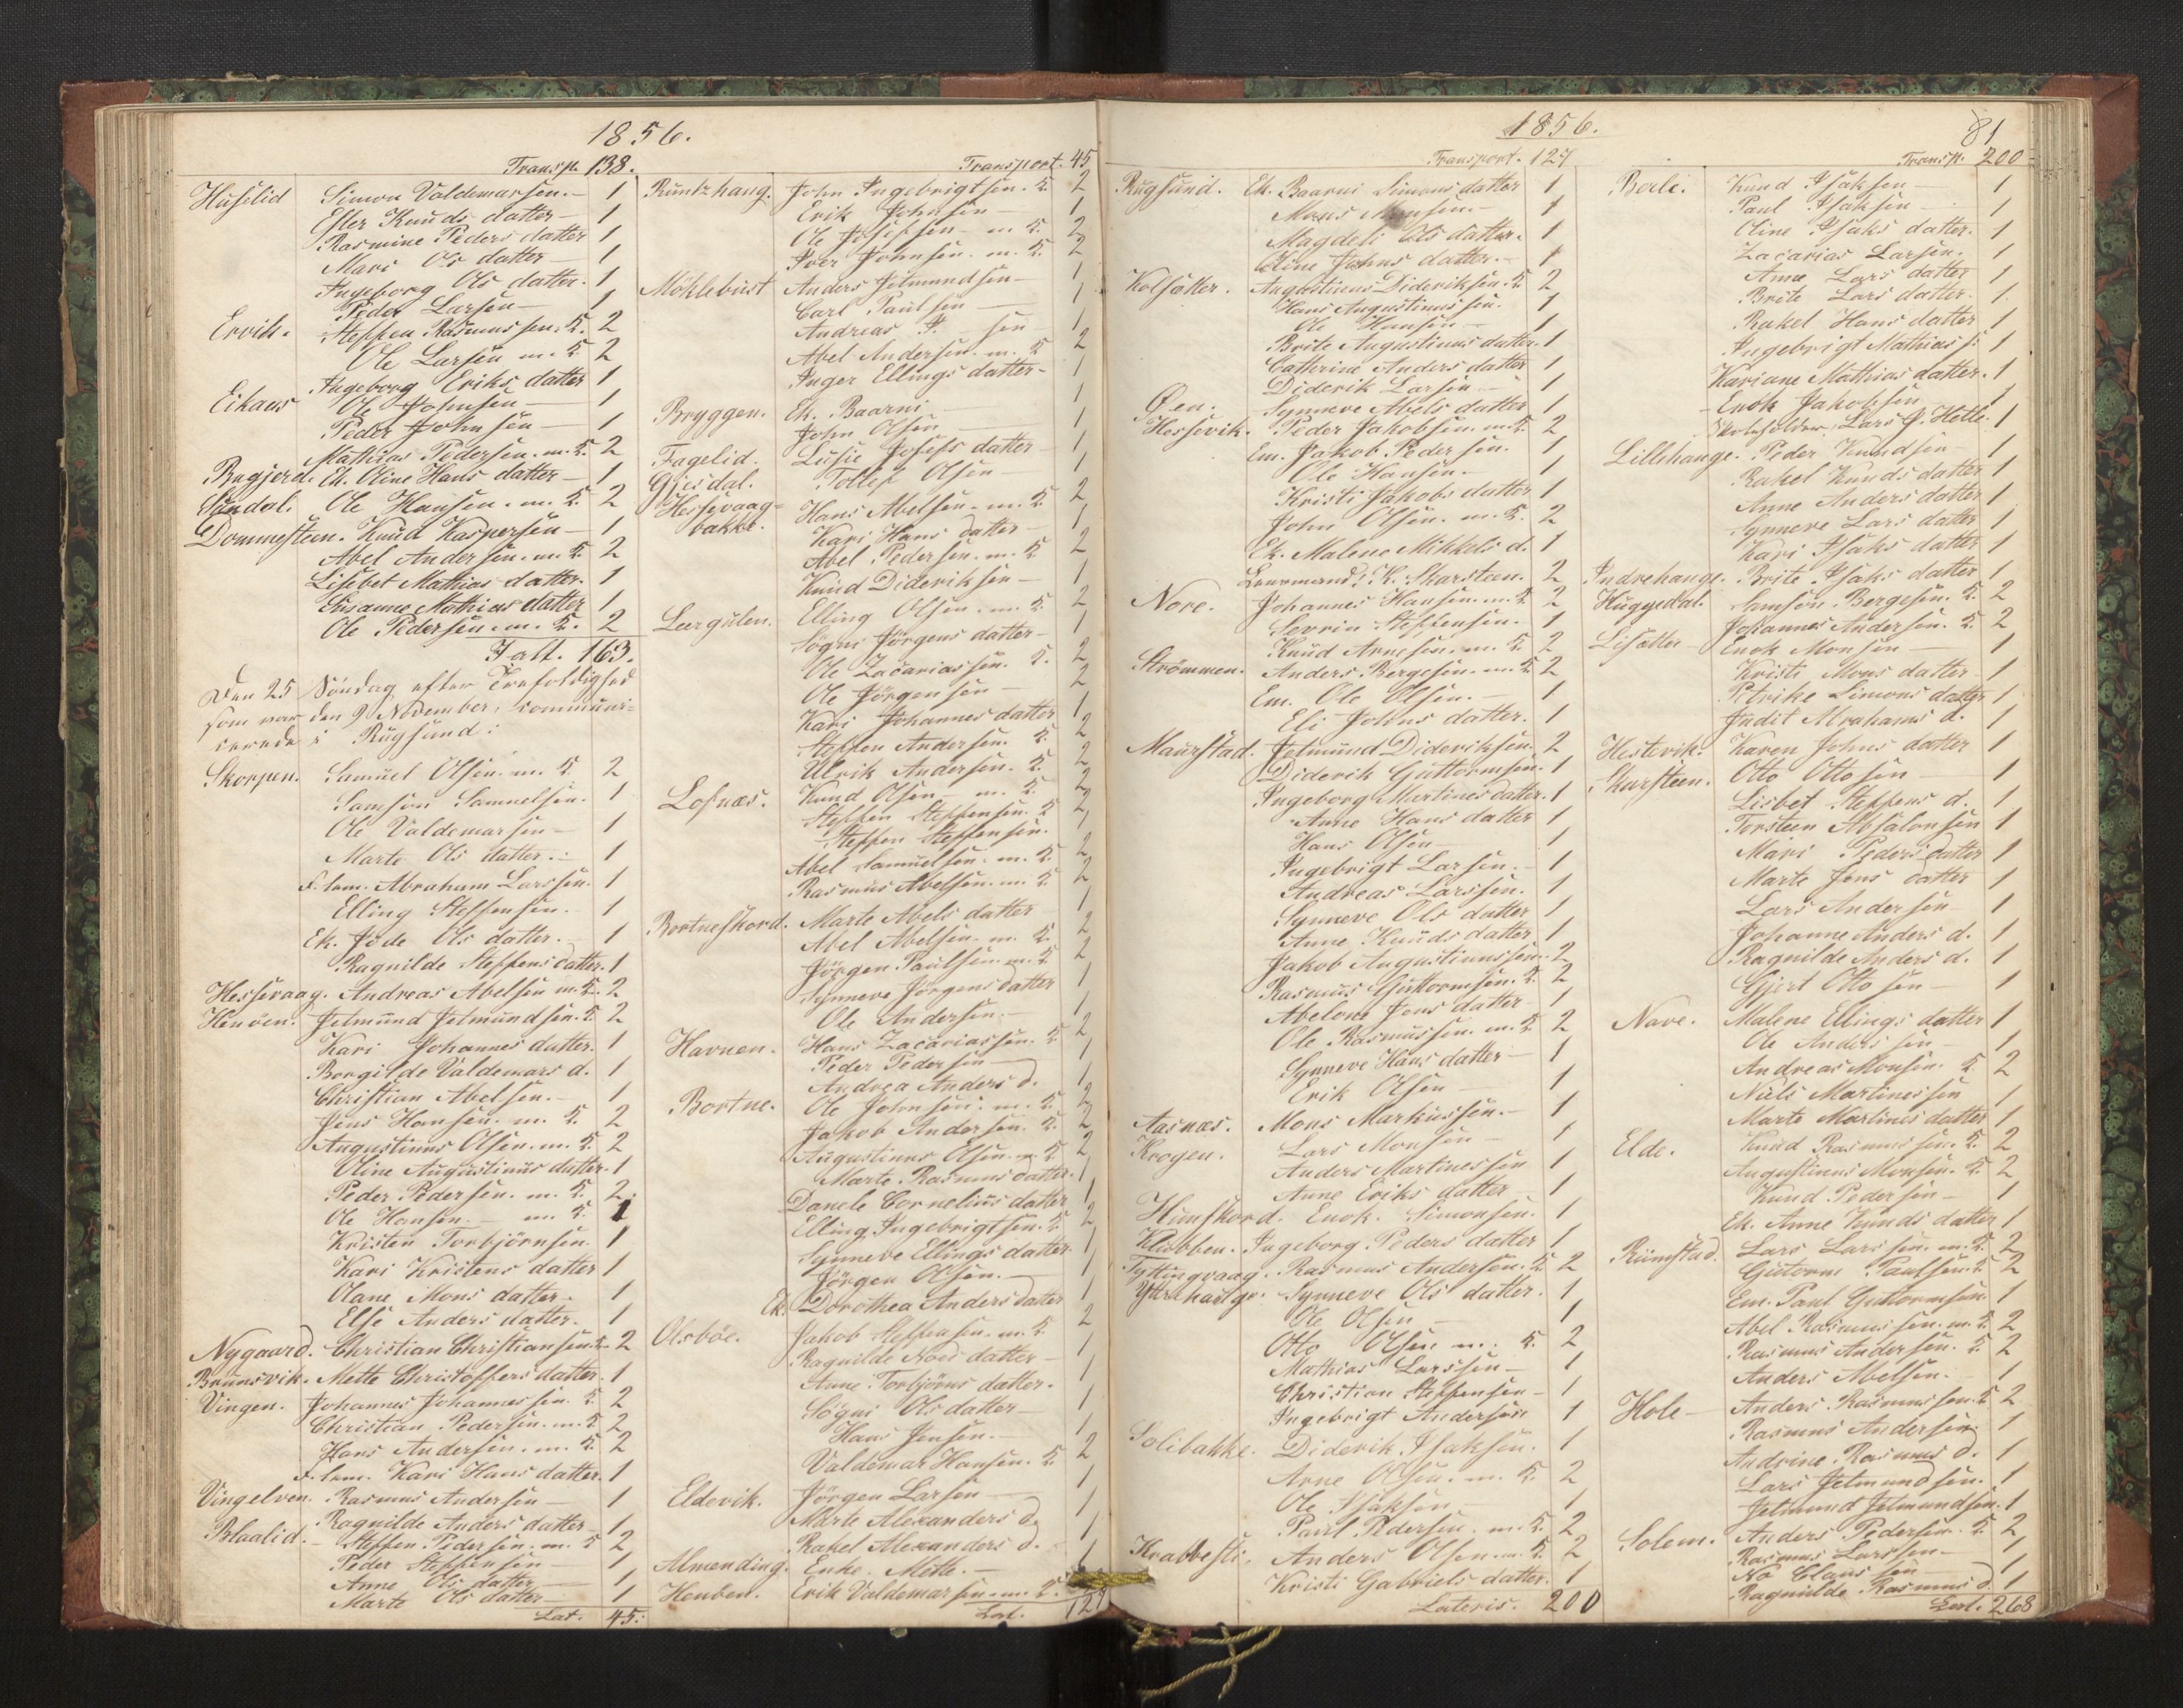 1856.
Transp. 138.
Huselid Simon Valdemarsen. - 1
Ester Knuds datter - 1
Rasmine Peders datter 1
Mari Ols datter - 1
Ingeborg Ols datter. 1
Peder Larsen - 1
Ervik. Steffen Rasmussen. K. 2
Ole Larsen m. K. 2
Ingeborg Eriks datter 1
Eikaas Ole Johnsen - 1
Peder Johnsen - 1
Mathias Pedersen. m. K. 2
Ragjerd. Ek. Oline Hans datter - 1
Sandal. Ole Hansen. m. K. 2
Dommesteen. Knud Kaspersen - 1
Abel Andersen. m. K. 2
Lisebet Mathias datter. 1
Susanne Mathias datter 1
Ole Pedersen. m. K. 2
Ialt. 163.
Den 25 Søndag efter Trefoldighed
som var den 9 November, communi-
cerede i Rugsund:
Skorpen. Samuel Olsen. m. K. 2
Samson Samuelsen. 1
Ole Valdemarsen - 1
Marte Ols datter. - 1
F. lem. Abraham Larssen. 1
Elling Steffensen. - 1
Ek. Jøde Ols datter. - 1
Ragnilde Steffens datter. 1
Hessevaag. Andreas Abelsen m. K. 2
Henøen. Jetmund Jetmundsen. K. 2
Kari Johannes datter. 1
Borgilde Valdemars d. 1
Christian Abelsen. - 1
Jens Hansen. m. K. 2
Augustinus Olsen. m. K. 2
Oline Augustinus datter. 1
Peder Pedersen. m. K. 2.
Ole Hansen. m. K. 1
Kristen Torbjörnsen. 1
Kari Kristens datter 1
Olane Mons datter. 1
Else Anders datter. 1
Nygaard. Christian Christiansen. K. 2
Brunsvik. Mette Christoffers datter. 1
Vingen. Johannes Johannessen. K. 2
Christian Pedersen. m. K. 2
Hans Andersen. m. K. 2
F. lem. Kari Hans datter. 1
Vingelven. Rasmus Andersen - 1
Ragnilde Anders datter - 1
Blaalid. - Steffen Pedersen. m. K 2
Peder Steffensen - 1
Anne Ols datter - 1
Marte Ols datter - 1
Lat. 45.
Transport. 45
Runtzhaug. John Ingebrigtsen. K. 2
Erik Johnsen - 1
Ole Josefsen - m. K. 2
Iver Johnsen. m. K. 2
Möklebust Anders Jetmundsen - 1
Carl Paulsen - 1
Andreas P. sen - 1
Abel Andersen. m. K 2
Inger Ellings datter - 1
Bryggen. Ek. Baarni - 1
John Olsen - 1
Fagelid. Lusie Josefs datter 1
Gjesdal. Tollef Olsen 1
Hessevaag- Hans Abelsen. m. K. 2
bakke. Kari Hans datter - 1
Abel Pedersen. m. K 2
Knud Dideriksen - 1
Lærgulen. Elling Olsen. m. K. 2
Søgni Jörgens datter - 1
Ole Zacariassen. K. 2
Ole Jörgensen - 2
Kari Johannes datter 1
Steffen Andersen. K. 2
Ulrik Andersen. K. 2
Lofnæs. Knud Olsen - m. K. 2
Steffen Steffensen. K 2
Steffen Steffensen. 1
Abel Samuelsen. m. K. 2
Rasmus Abelsen. m. K 2
Bortneskord. Marte Abels datter 1
Abel Abelsen. m. K. 2
Jörgen Paulsen. m. K 2
Synneve Jörgens datter 1
Ole Andersen. - 1
Havnen. Hans Zacariassen. K 2
Peder Pedersen - 1
Andrea Anders d. 1
Bortne. Ole Johnsen. m. K. 2
Jakob Andersen. K. 2
Augustinus Olsen. m. K 2
Marte Rasmus datter. 1
Danele Cornelius datter 1
Elling Ingebrigtsen. K. 2
Synneve Ellings datter. 1
Jörgen Olsen. - 1
Ek. Dorothea Anders datter 1
Olsböe. Jakob Steffensen. m. K. 2
Ragnilde Noes datter - 1
Anne Torbjörns datter. 1
Søgni Ols datter - 1
Hans Jensen. - 1
Valdemar Hansen. K. 2
Eldevik. Jörgen Larsen - 1
Marte Alexanders d. 1
Rakel Alexanders d. 1
Almending. Enke. Mette. - 1
Henben. Erik Valdemarsen. m. K. 2
Lat. 127
1856.
81
Transport. 127
Rugsund. Ek. Baarni Simons datter 1
Mons Monsen. - 1
Magdeli Ols datter. 1
Oline Johns datter. - 1
Kolsætter. Augustinus Dideriksen. K 2
Hans Augustinussen. 1
Ole Hansen - 1
Brite Augustinus datter. 1
Cathrine Anders datter 1
Diderik Larsen - 1
Øen. Synneve Abels datter 1
Hessevik. Peder Jakobsen. m. K. 2
Em. Jakob Pedersen. 1
Ole Hansen. - 1
Kristi Jakobs datter 1
John Olsen. m. K. 2
Ek. Malene Mikkels d. 1
Lensmand: K. Skarsteen. 2
Nore. Johannes Hansen. m. K 2
Sevrin Steffensen. 1
Knud Arnesen. m. K 2
Strömmen. Anders Bergesen. m. K 2
Em. Ole Olsen. - 1
Eli Johns datter. 1
Maurstad. Jetmund Dideriksen. 2
Diderik Guttormsen. 1
Ingeborg Martines datter. 1
Anne Hans datter 1
Hans Olsen - 1
Ingebrigt Larsen. - 1
Andreas Larssen. 1
Synneve Ols datter 1
Anne Knuds datter 1
Jakob Augustinussen. 2
Rasmus Guttormsen. K. 2
Abelone Jens datter 1
Ole Rasmussen. m. K 2
Synneve Hans datter - 1
Erik Olsen - 1
Aasnæs. Mons Markussen. - 1
Krogen. Lars Monsen - 1
Anders Martinessen 1
Anne Eriks datter 1
Hunskord. Enok. Simonsen. 1
Klubben. Ingeborg Peders datter 1
Tyttingvaag. Rasmus Andersen. K. 2
Yttrehauge. Synneve Ols datter. 1
Ole Olsen - 1
Otto Olsen m. K. 2
Mathias Larssen - 1
Christian Steffensen - 1
Ingebrigt Andersen 1
Solibakke. Diderik Isaksen. 1
Arne Olsen. m. K. 2
Ole Isaksen 1
Paul Pedersen. m. K. 2
Krabbesti. Anders Olsen. m. K. 2
Kristi Gabriels datter. 1
Lateris. 200
Transp. 200
Berle. Knud Isaksen - 1
Paul Isaksen - 1
Oline Isaks datter. 1
Zacarias Larsen. 1
Anne Lars datter 1
Brite Lars datter. 1
Rakel Hans datter 1
Ingebrigt Mathias s: 1
Kariane Mathias datter. 1
Enok Jakobsen 1
Skoleholder Lars J. Hetle. 1
Lillehauge. Peder Knudsen - 1
Rakel Knuds datter 1
Anne Anders datter 1
Synneve Lars datter 1
Kari Isaks datter 1
Indrehauge. Brite Isaks datter 1
Hugyedal. Samson Bergesen. K. 2
Johannes Andersen. K. 2
Lisætter - Enok Monsen - 1
Kristi Mons datter - 1
Petrike Simons datter 1
Judit Abrahams d. 1
Hestevik. Karen Johns datter 1
Skarsteen. Otto Ottosen - 1
Lisbet Steffens d. 1
Torsteen Absalonsen 1
Mari Peders datter 1
Marte Jens datter 1
Lars Andersen - 1
Johanne Anders d. 1
Ragnilde Anders d. 1
Gjert Ottosen - 1
Nave. Malene Ellings datter 1
Ole Andersen - 1
Andreas Monsen. K. 2
Niels Martinessen 1
Marte Martines datter 1
Elde. Knud Rasmussen. K. 2
Augustinus Monsen. K. 2
Knud Pedersen - 1
Ek. Anne Knuds datter 1
Rimstad. Lars Larssen. m. K. 2
Gutorm Paulsen. K. 2
Em. Paul Guttormsen 1
Abel Rasmussen. m. K. 2
Rasmus Andersen. K. 2
Anders Abelsen. 1
Hole - Anders Rasmussen. K 2
Rasmus Andersen 1
Andrine Rasmus d. 1
Lars Jetmundsen. 1
Jetmund Jetmundsen. 1
Solem. Anders Pedersen. K. 2
Rasmus Larssen - 1
No Clausen - 1
Ragnilde Rasmus d. 1
Lat. 268